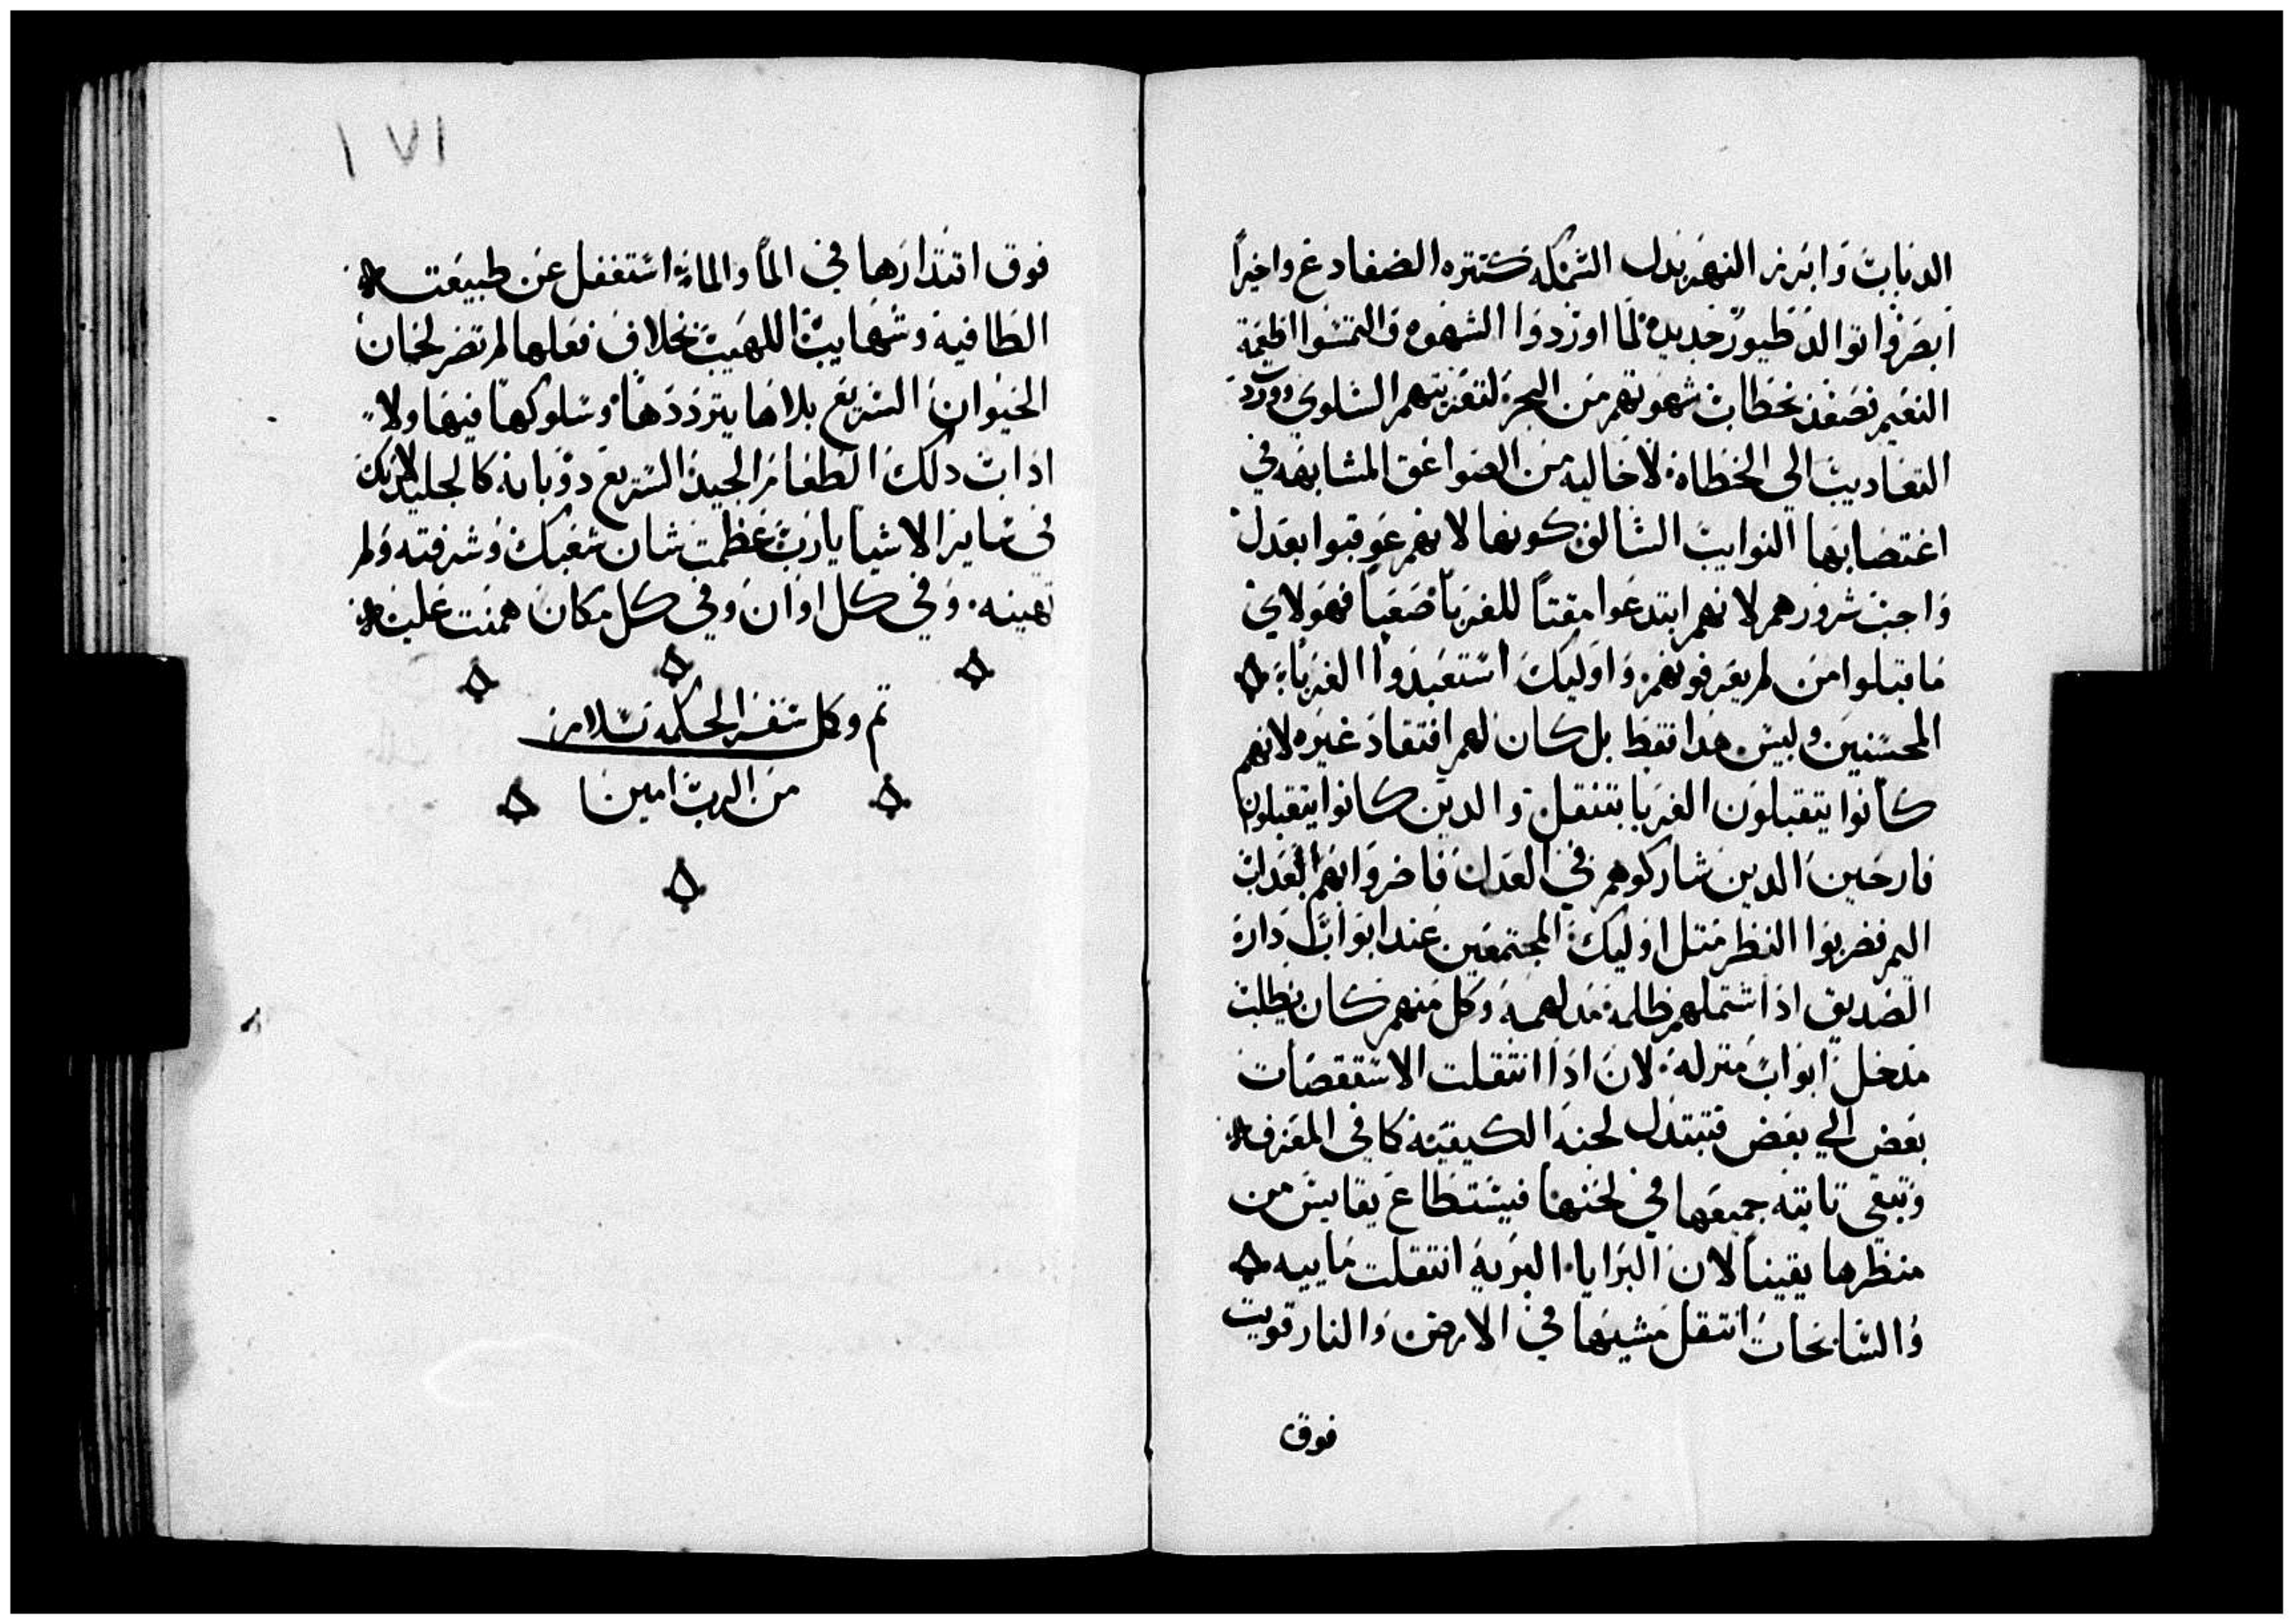 الدبابات وابرز النهر بدل السمكه كتره الضفادع واخيراً
ابصروا توالد طيور جديدة لما اوردوا الشهوه والتمسوا اطعمة
النعيم فصعد بخطاب شهوتهم من البحر لتعزيتهم السلوي وورد
التعاديب الي الخطاة لا خاليه من الصواعق المشابهه في
اغتصابها النوايب السالف كونها لانهم عوقبوا بعدل
واجب شرورهم لانهم ابتدعوا مقتاً للغربا صعباً فهولاي
ما قبلوا من لم يعرفونهم واوليك استعبدوا الغرباء
المحسنين وليس هدا فقط بل كان لهم افتقاد غيره لانهم
كانوا يتقبلون الغربا بتنقل والدين كانوا يتقبلون
فارحين الدين شاركوهم في العدل فاضروا بهم بعداب
اليم فضربوا النظر متل اوليك المجتمعين عند ابواب دارة
الصديق اذ اشتملهم ظلمة مدلهمه وكل منهم كان يطلب
مدخل ابواب منزله لان اذا انتقلت الاستقصات
بعض الي بعض فتبتدل لحنه الكيفيتة كما في المعزف
وتبقي تابته جميعها في لحنها فيستطاع يقايس من
منظرها يقيناً لان البرايا البرية انتقلت ماييه
والسابحات انتقل مشيها في الارض والنار قويت
فوق
١٧١
فوق اقتدارها في الماً والماء استغفل عن طبيعته
الطافيه وشهايب اللهيب بخلاف فعلها لم تضر لحمان
الحيوان السريع بلاها يترددها وسلوكها فيها ولا
اذابت دلك الطعامر الجيد السريع دوبانه كالجليد لانك
في ساير الاشيا يارب عظمت شان شعبك وشرفته ولم
تهينه وفي كل اوان وفي كل مكان همنت عليه
تم وكمل سفر الحكمه بسلامز
من الرب امين